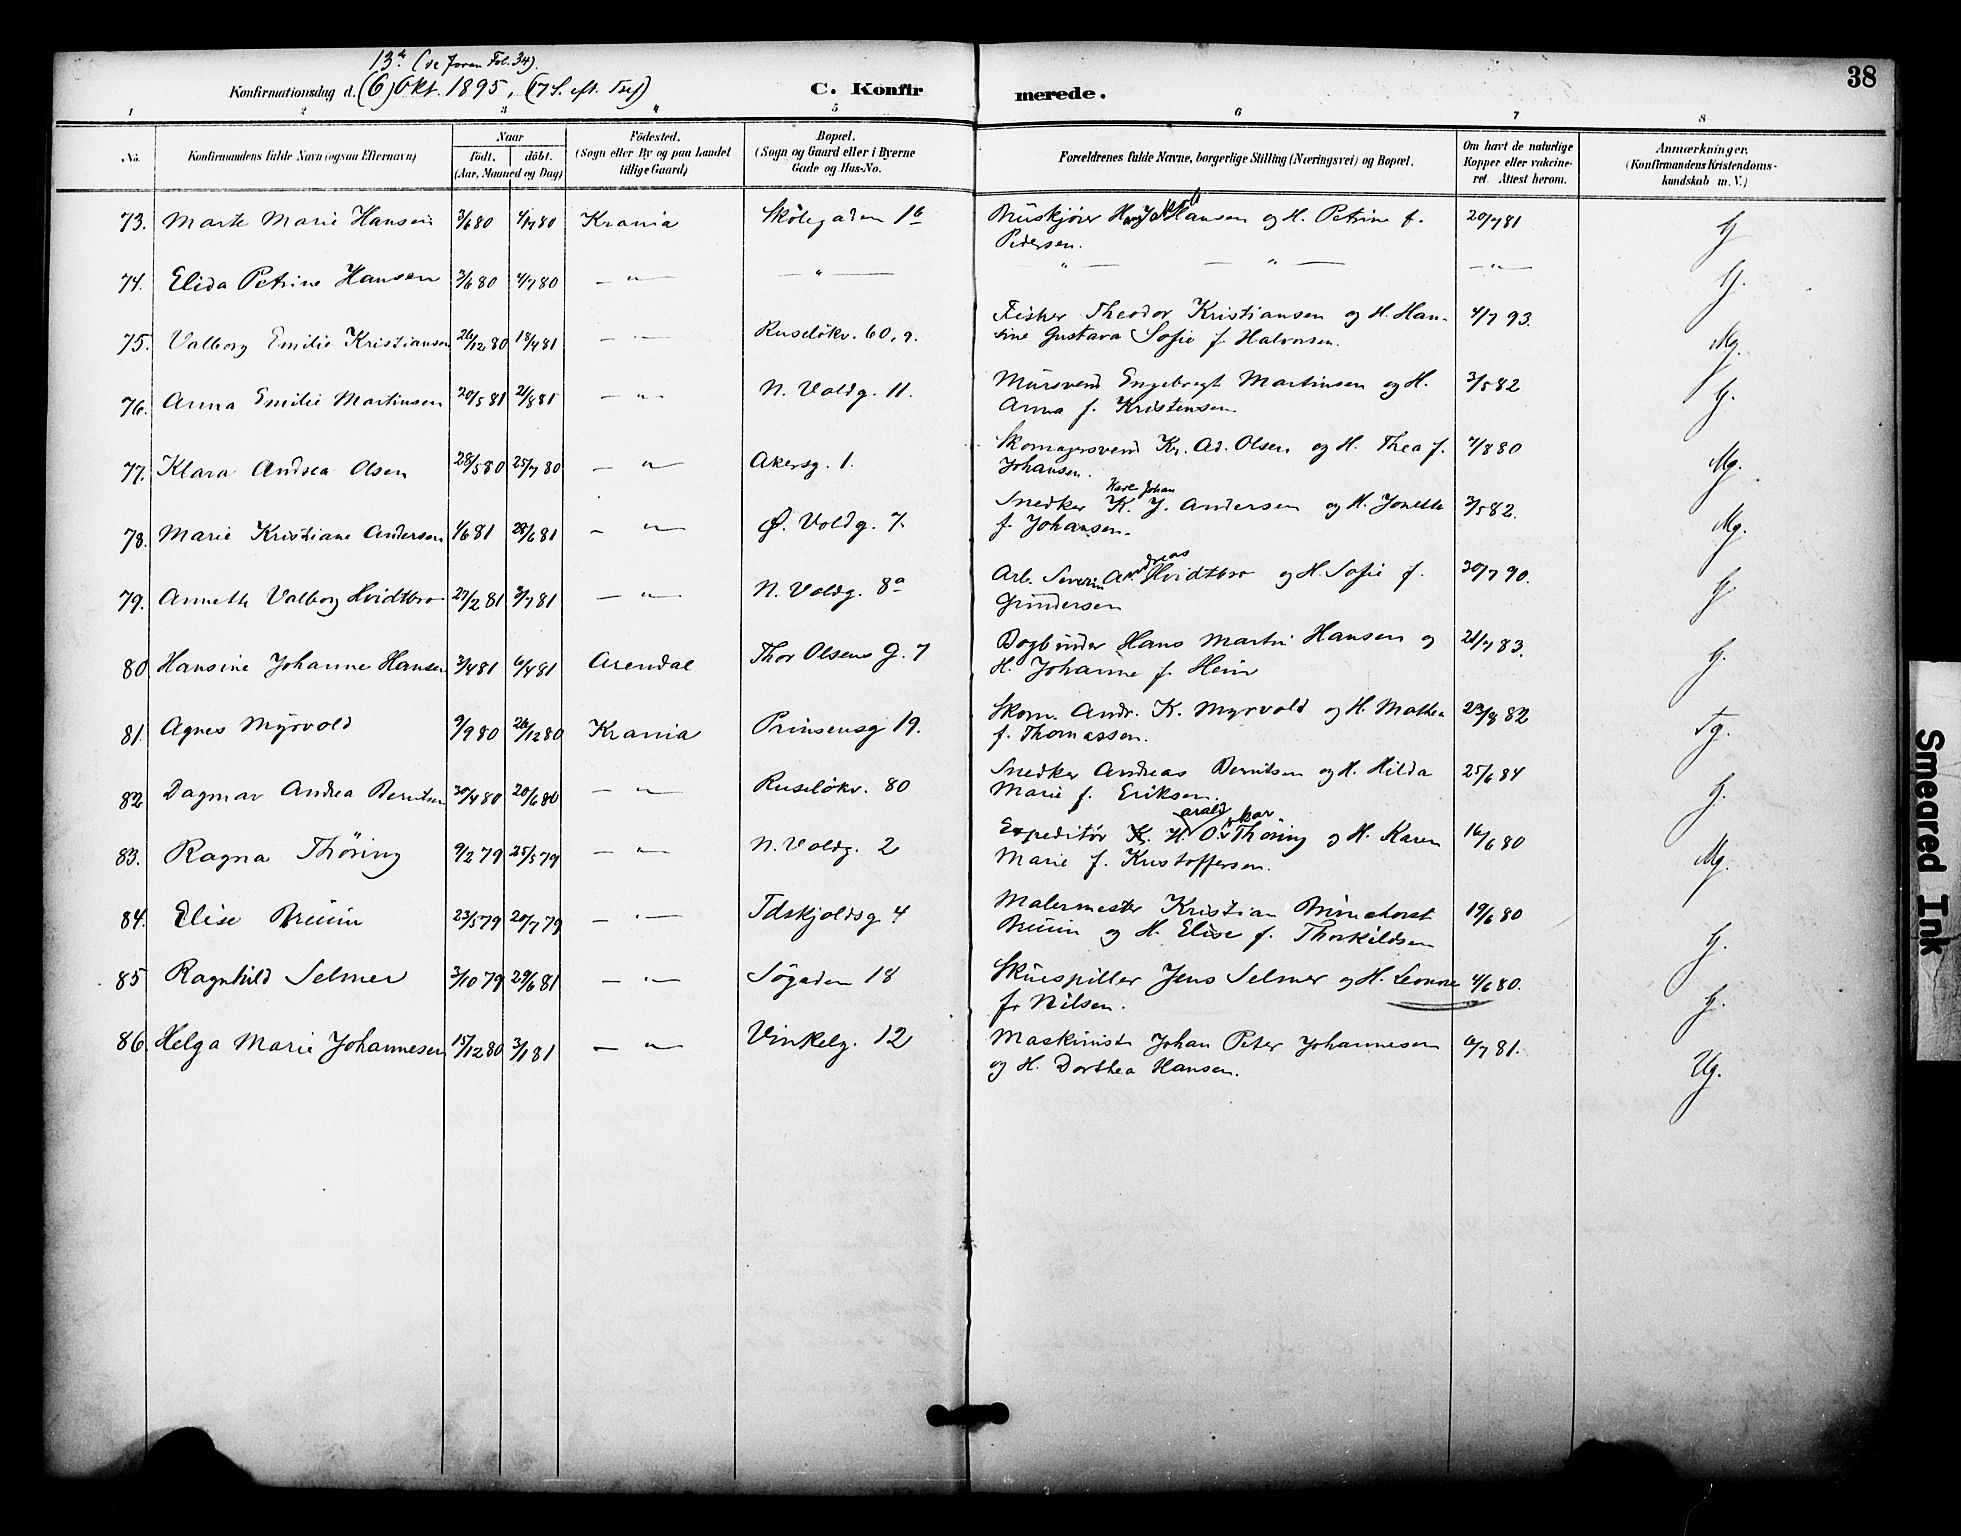 13de (se foran Fol. 34).
Konfirmationsdag d. (6) Okt. 1895, (17 S. eft. Tref)
C. Konfir
merede.
38
1 2 3 4 5 6 7 8
No.
Konfirmandens fulde Navn (ogsaa Efternavn)
Naar
födt. döbt.
(Aar, Maaned og Dag)
Födested.
(Sogn eller By og paa Landet
tillige Gaard)
Bopæl.
(Sogn og Gaard eller i Byerne
Gade og Hus-No.
Forældrenes fulde Navne, borgerlige Stilling (Næringsvei) og Bopæl.
Om havt de naturlige
Kopper eller vakcine-
ret. Attest herom.
Anmærkninger.
(Konfirmandens Kristendoms-
kundskab m. V.)
73. Marte Marie Hansen 3/6 80 4/7 80 Krania Skölegaden 16 Hansen og H. Petrine f. 20/7 81 G
Pedersen.
74. Elida Petrine Hansen 3/6 80 4/7 80 — " — — " — — " — — " — — " — G.
75. Valborg Emilie Kristiansen 26/12 80 18/4 81 — " — Ruselökv. 60, 9. Fisker Theodor Kristiansen og H. Han- 4/7 93. Mg.
sine Gustava Sofie f. Halvorsen.
76. Anna Emilie Martinsen 20/5 81 21/8 81 — " — N. Voldg. 11. Mursvend Engebregt Martinsen og H. 3/5 82 G.
Anna f. Kristensen.
77. Klara Andrea Olsen 28/5 80 25/7 80 — " — Akersg. 1. Skomagersvend Kr. Ad. Olsen og H. Thea f. 7/8 80 Mg.
Johansen.
Karl Johan
78. Marie Kristiane Andersen 1/6 81 28/6 81 — " — Ø. Voldg. 7. Snedker K. J. Andersen og H. Jonette 3/5 82. Mg.
f. Johansen.
79. Annette Valborg Hvidtbro 27/2 81 3/7 81 — " — N. Voldg. 8a Arb. Severin Andreas Hvidtbro og H. Sofie f. 30/7 90. G
Gundersen
80. Hansine Johanne Hansen 3/4 81 6/4 81 Arendal Thor Olsens G. 7 Bogbinder Hans Martin Hansen og 21/7 83. G.
H. Johanne f. Hein
81. Agnes Myrvold 9/9 80 26/12 80 Krania Prinsensg 19. Skom. Andr. K. Myrvold og H. Mathea 23/8 82 Tg.
f. Thomassen.
82 Dagmar Andrea Berntsen 30/4 80 20/6 80 — " — Ruselökv. 80 Snedker Andreas Berntsen og H. Hilda 25/6 84 G.
Marie f. Eriksen.
arald skar
83. Ragna Thöring 9/2 79 25/5 79 — " — N. Voldg. 2 Expeditör K. H. O. Thöring og H. Karen 16/6 80 Mg.
Marie f. Kristoffersen.
84. Elise Bruun 23/5 79 20/7 79 — " — Tdskjoldsg 4 Malermester Kristian 19/6 80 G.
Bruun og H. Elise f. Thorkildsen
85 Ragnhild Selmer 3/10 79 29/6 81 — " — Søgaden 18 Skuespiller Jens Selmer og H. Leonore 4/6 80. G.
f. Nilsen.
86. Helga Marie Johannesen 15/12 80 3/1 81 — " — Vinkelg. 12 Maskinist Johan Peter Johannesen 6/7 81. Ug.
og H. Dorthea Hansen.
Smeared Ink